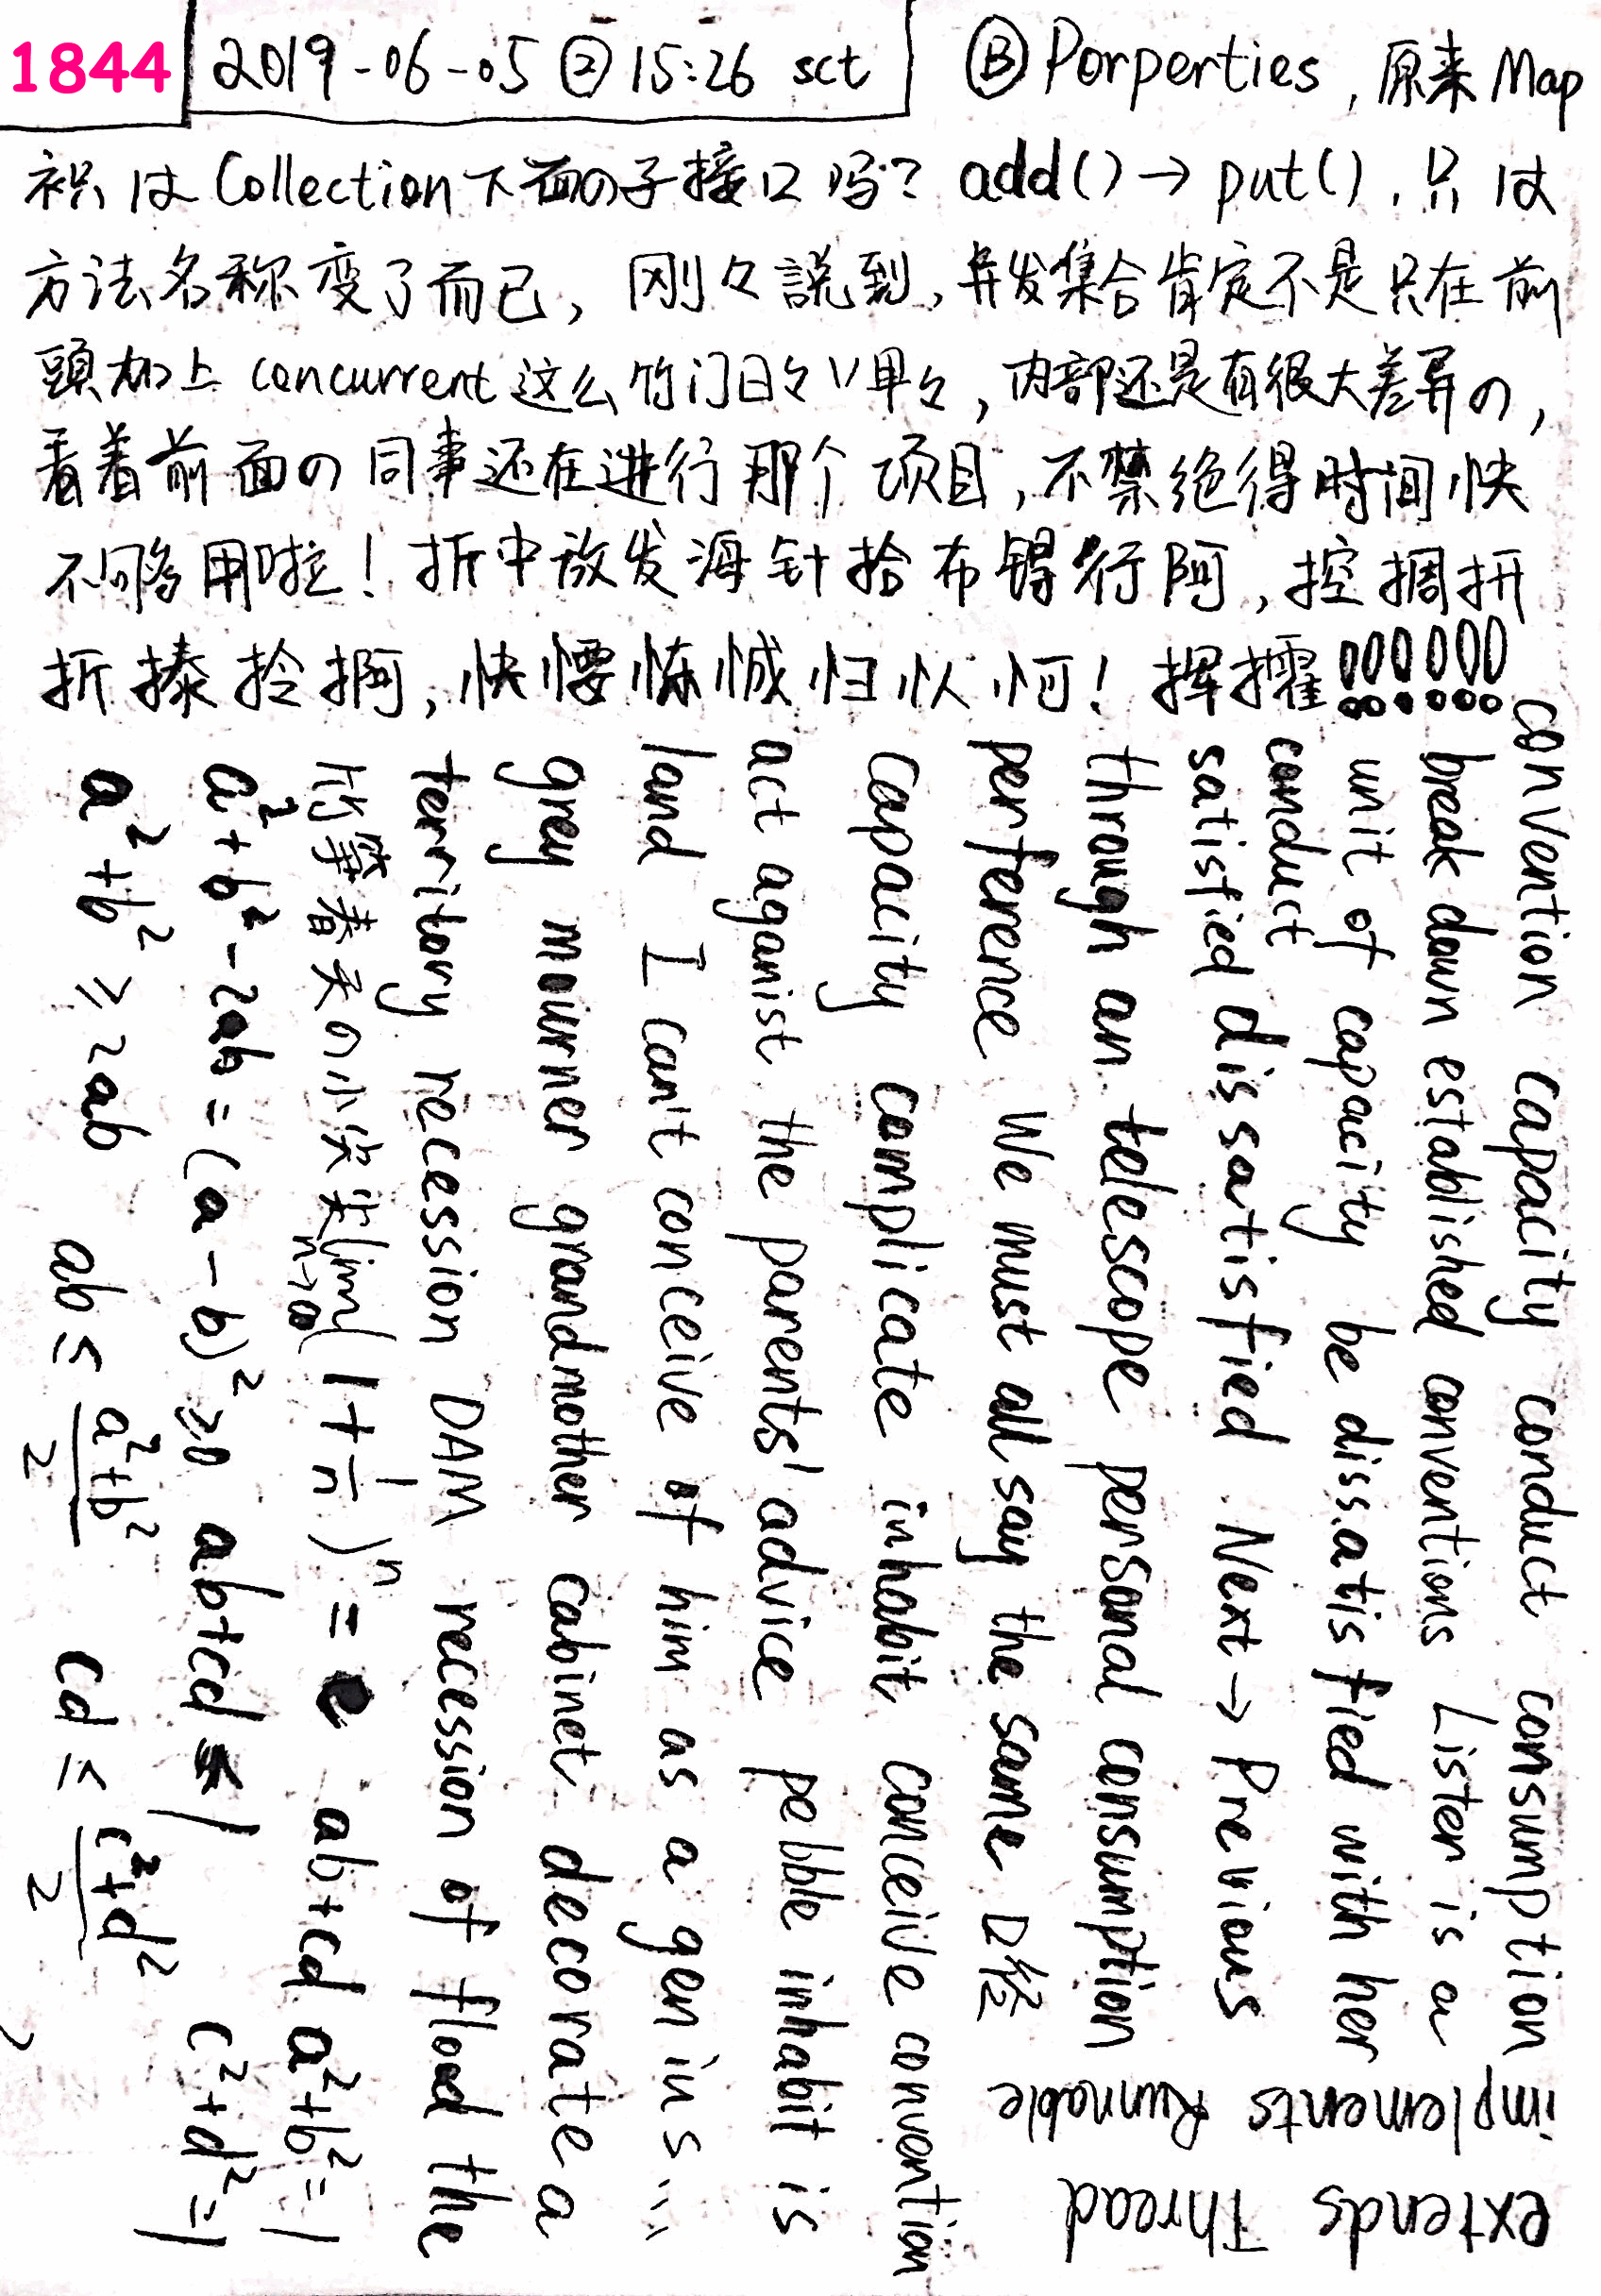 1844 2019-06-05 ② 15:26 sct Ⓑ Porperties, 原来 Map
Collection 下面の子接口吗? add()→put(), 只
方法名称变了而已, 刚々説到, 并发集合肯定不是只在前
頭加上 concurrent 这么, 内部还是有很大差异の,
看着前面の同事还在进行那个项目, 不禁绝得时间快
不够用啦! 折中放发海针拾布锝行阿, 控捆拼
折搸拎搁, 快怀忯! 挥擢!!!!!!!
convention capacity conduct consumption
break down established conventions Lister is a
unit of capacity be dissatisfied with her
conduct
satisfied dissatisfied Next→Previous
through an telescope personal consumption
perference We must all say the same
capacity complicate inhabit conceive convention
act aganist the parents' advice pebble inhabit is
land I can't conceive of him as a genius...
grey mourner grandmother cabinet decorate a
territory recession DAM recession of flood the
の小 lim n→∞ (1+1/n)ⁿ = e ab+cd a²+b²=1
a²+b²-2ab=(a-b)²≥0 ab+cd≤1 c²+d²=1
a²+b²≥2ab ab≤(a²+b²)/2 cd≤(c²+d²)/2
implements Runnable
extends Thread